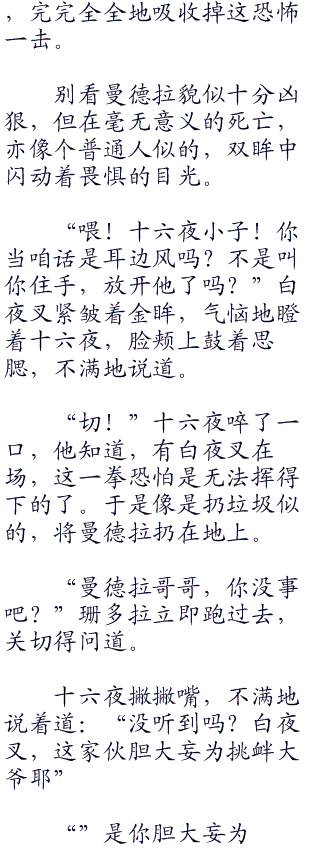 ，完完全全地吸收掉这恐怖
一击。
别看曼德拉貌似十分凶
狠，但在毫无意义的死亡，
亦像个普通人似的，双眸中
闪动着畏惧的目光。
“喂！十六夜小子！你
当咱话是耳边风吗？不是叫
你住手，放开他了吗？”白
夜叉紧皱着金眸，气恼地瞪
着十六夜，脸颊上鼓着思
腮，不满地说道。
“切！”十六夜啐了一
口，他知道，有白夜叉在
场，这一拳恐怕是无法挥得
下的了。于是像是扔垃圾似
的，将曼德拉扔在地上。
“曼德拉哥哥，你没事
吧？”珊多拉立即跑过去，
关切得问道。
十六夜撇撇嘴，不满地
说着道：“没听到吗？白夜
叉，这家伙胆大妄为挑衅大
爷耶”
“”是你胆大妄为